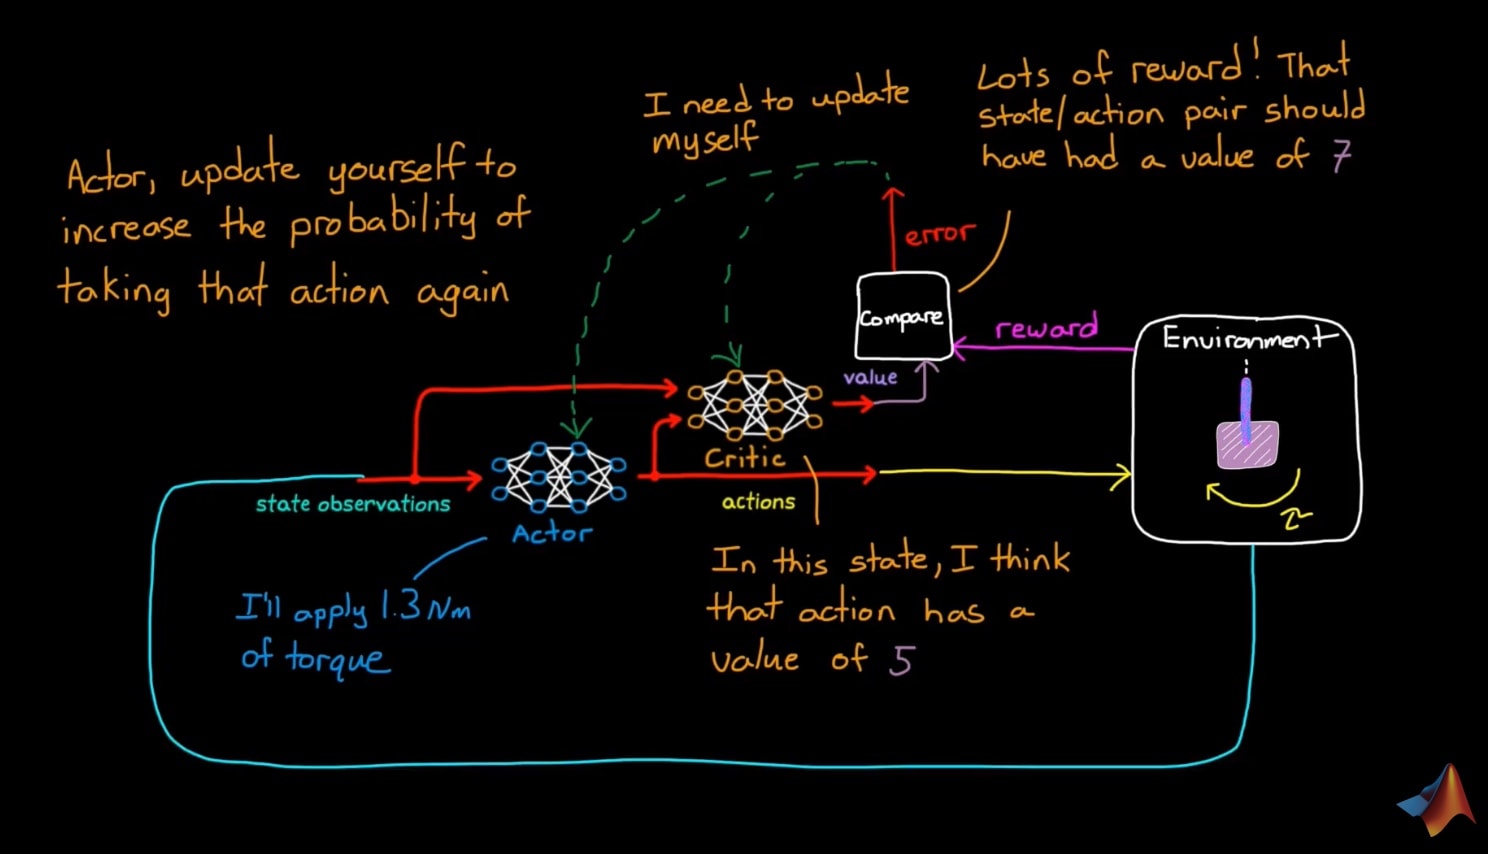 Actor, update yourself to
increase the probability of
taking that action again
I need to update
myself
Lots of reward! That
state/action pair should
have had a value of 7
error
Compare
reward
Environment
value
Critic
state observations
actions
Actor
τ
I'll apply 1.3 Nm
of torque
In this state, I think
that action has a
value of 5